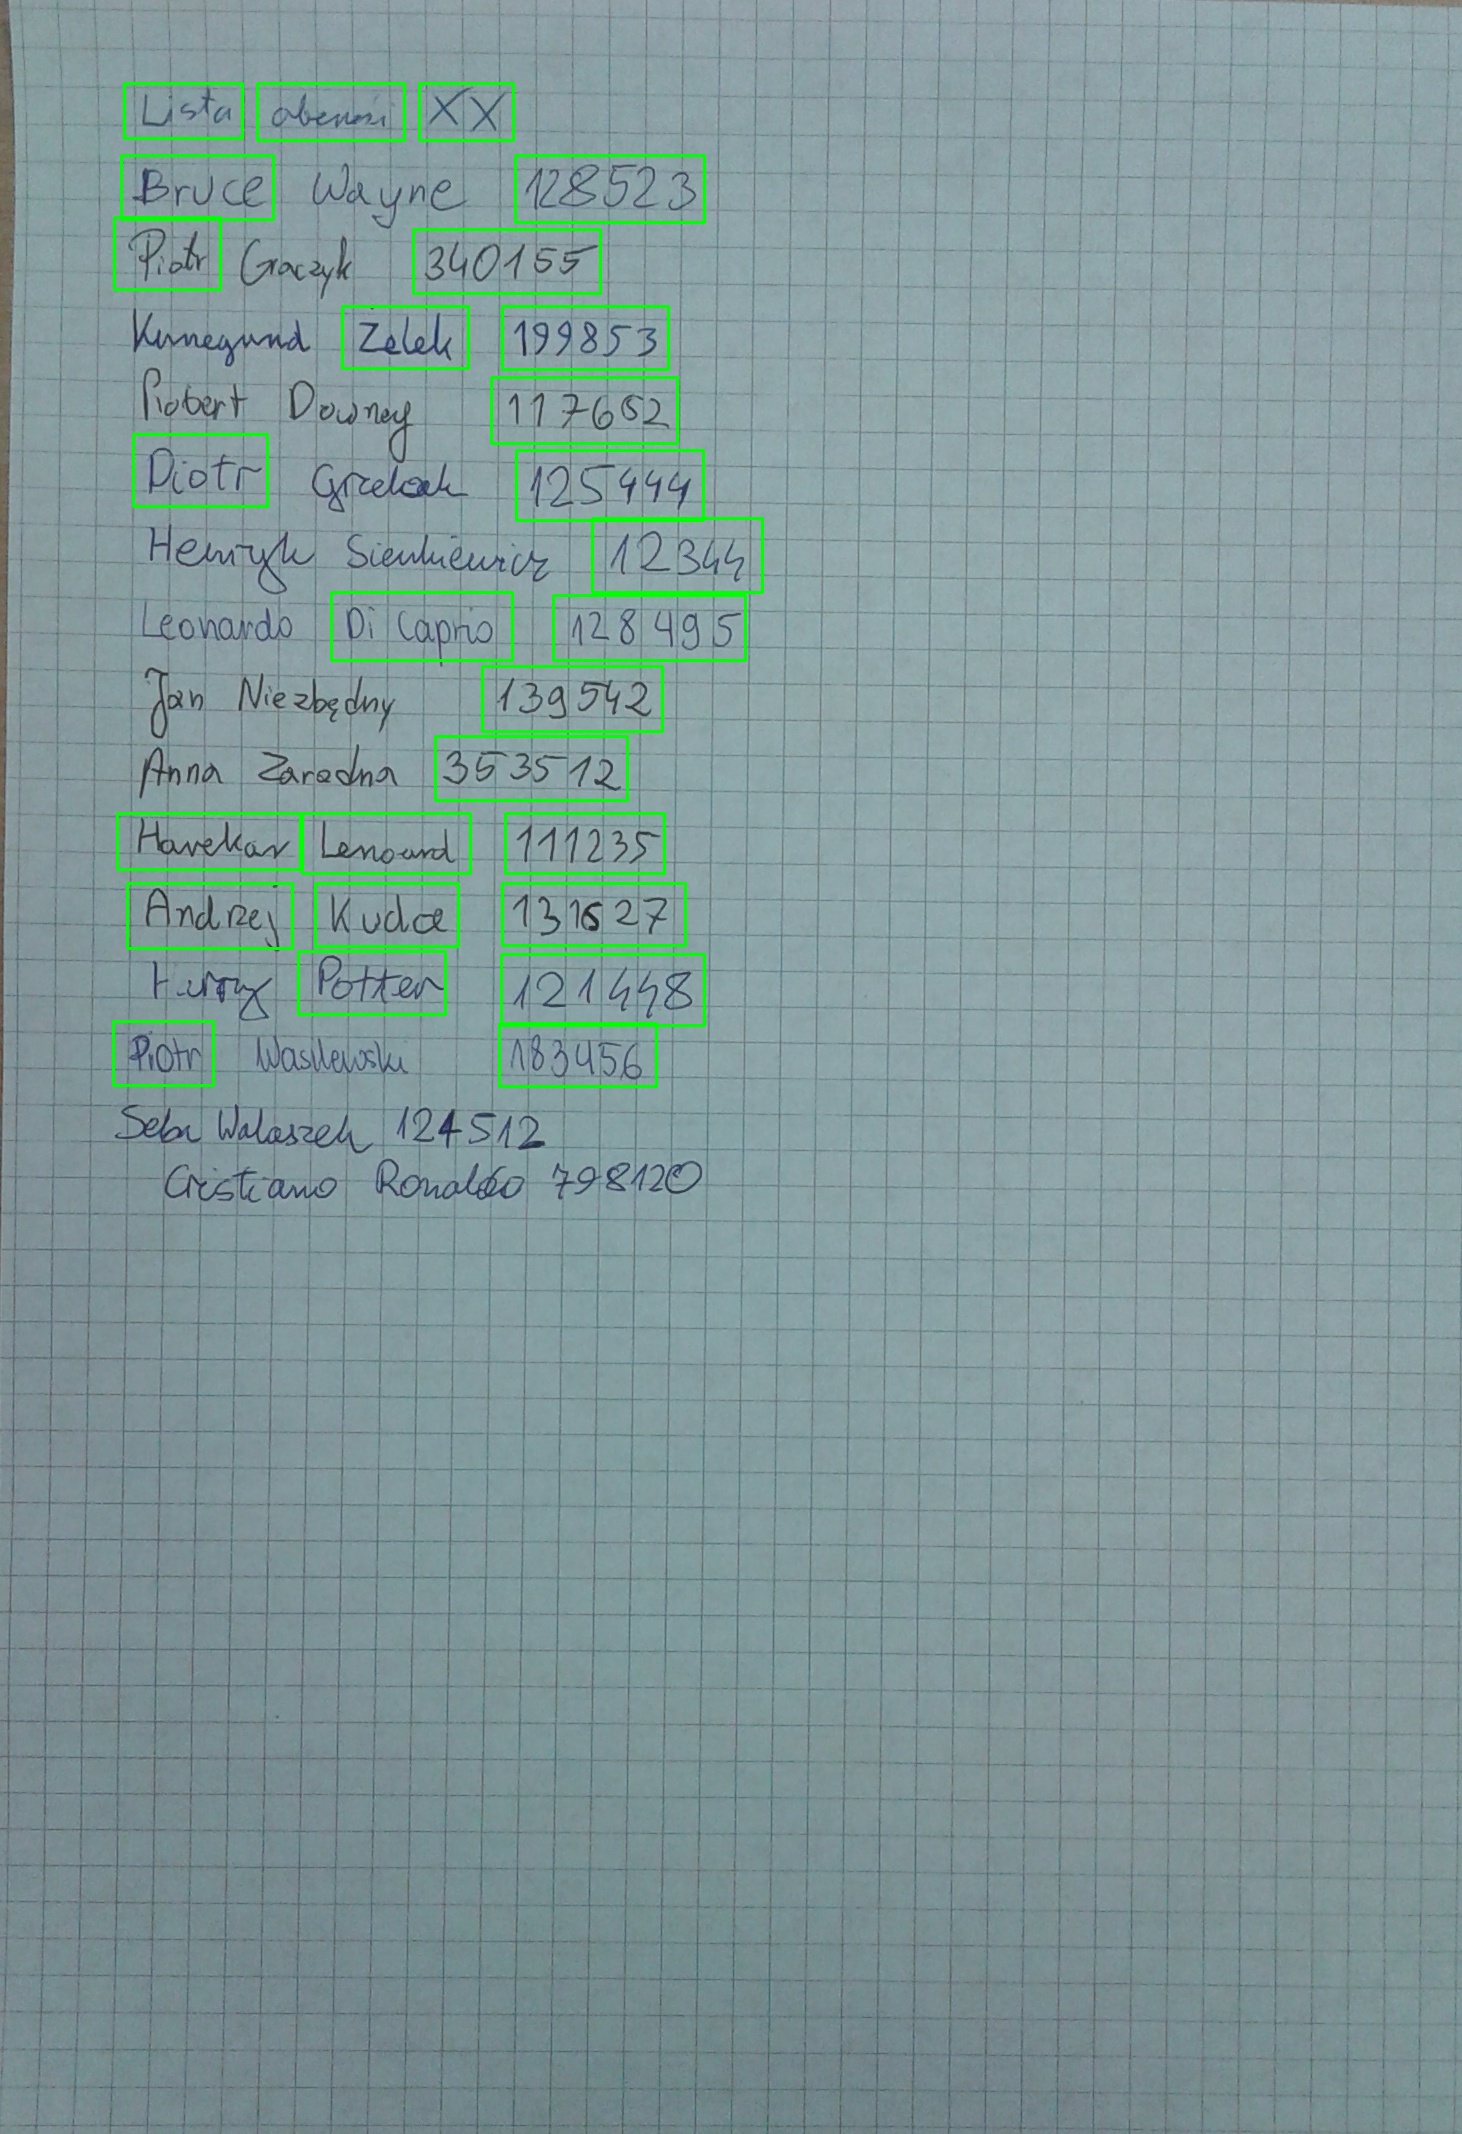 Lista obecności XX
Bruce Wayne 128523
Piotr Graczyk 340155
Kunegund Zelek 199853
Robert Downey 117652
Piotr Grzelak 125444
Henryk Sienkiewicz 12344
Leonardo Di Caprio 128495
Jan Niezbędny 139542
Anna Zaradna 353512
Havekar Lenoard 111235
Andrzej Kudca 131627
Harry Potter 121448
Piotr Wasilewski 183456
Seba Walaszek 124512
Cristiano Ronaldo 798120